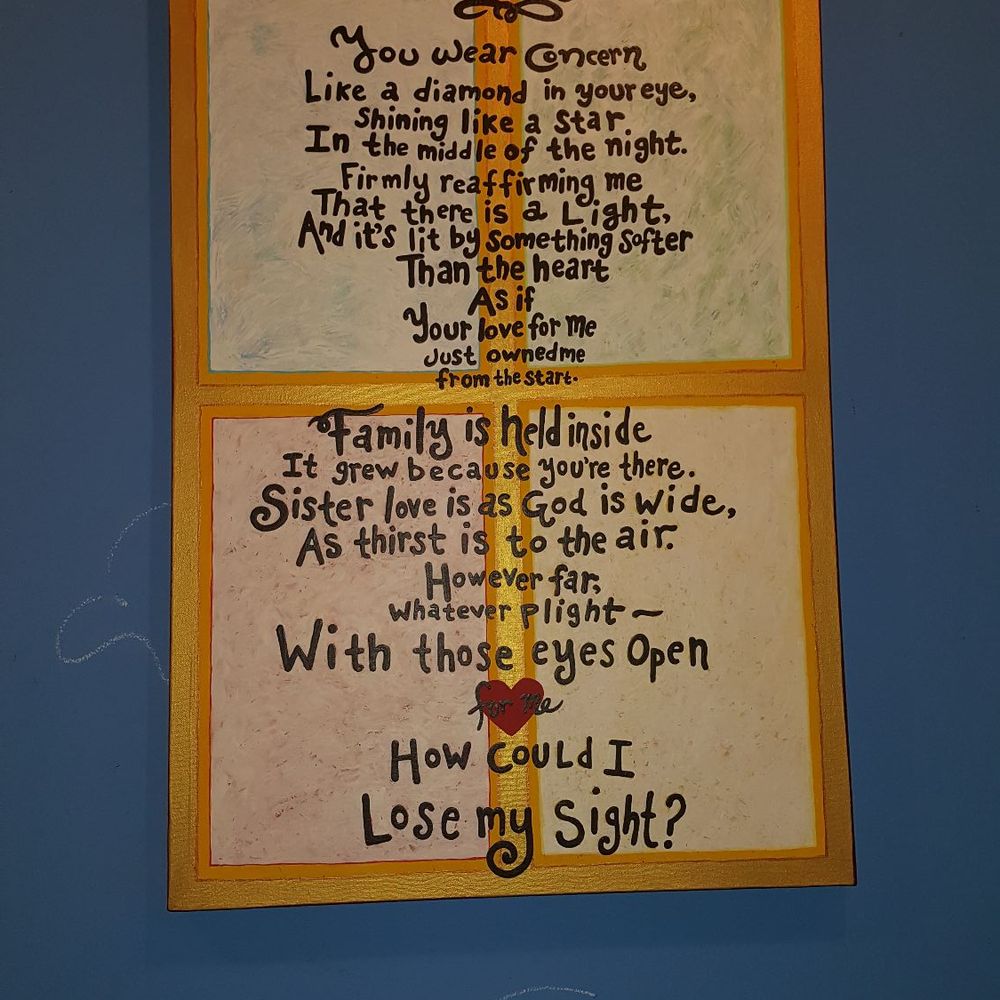 You wear Concern
Like a diamond in your eye,
Shining like a star
In the middle of the night.
Firmly reaffirming me
That there is a Light,
And it's lit by something softer
Than the heart
As if
Your love for me
Just owned me
from the start.
Family is held inside
It grew because you're there.
Sister love is as God is wide,
As thirst is to the air.
However far,
whatever plight—
With those eyes Open
for me
How could I
Lose my Sight?